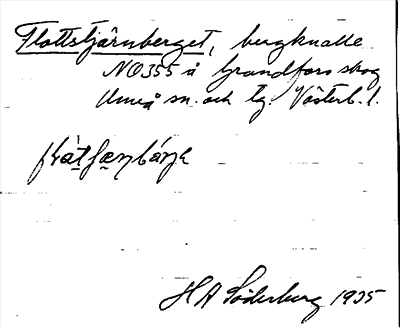 Flottstjärnberget, bergknalle
NO355 å Grandfors skog
Umeå sn. och tg. Västerb. l.
H A Söderberg 1935